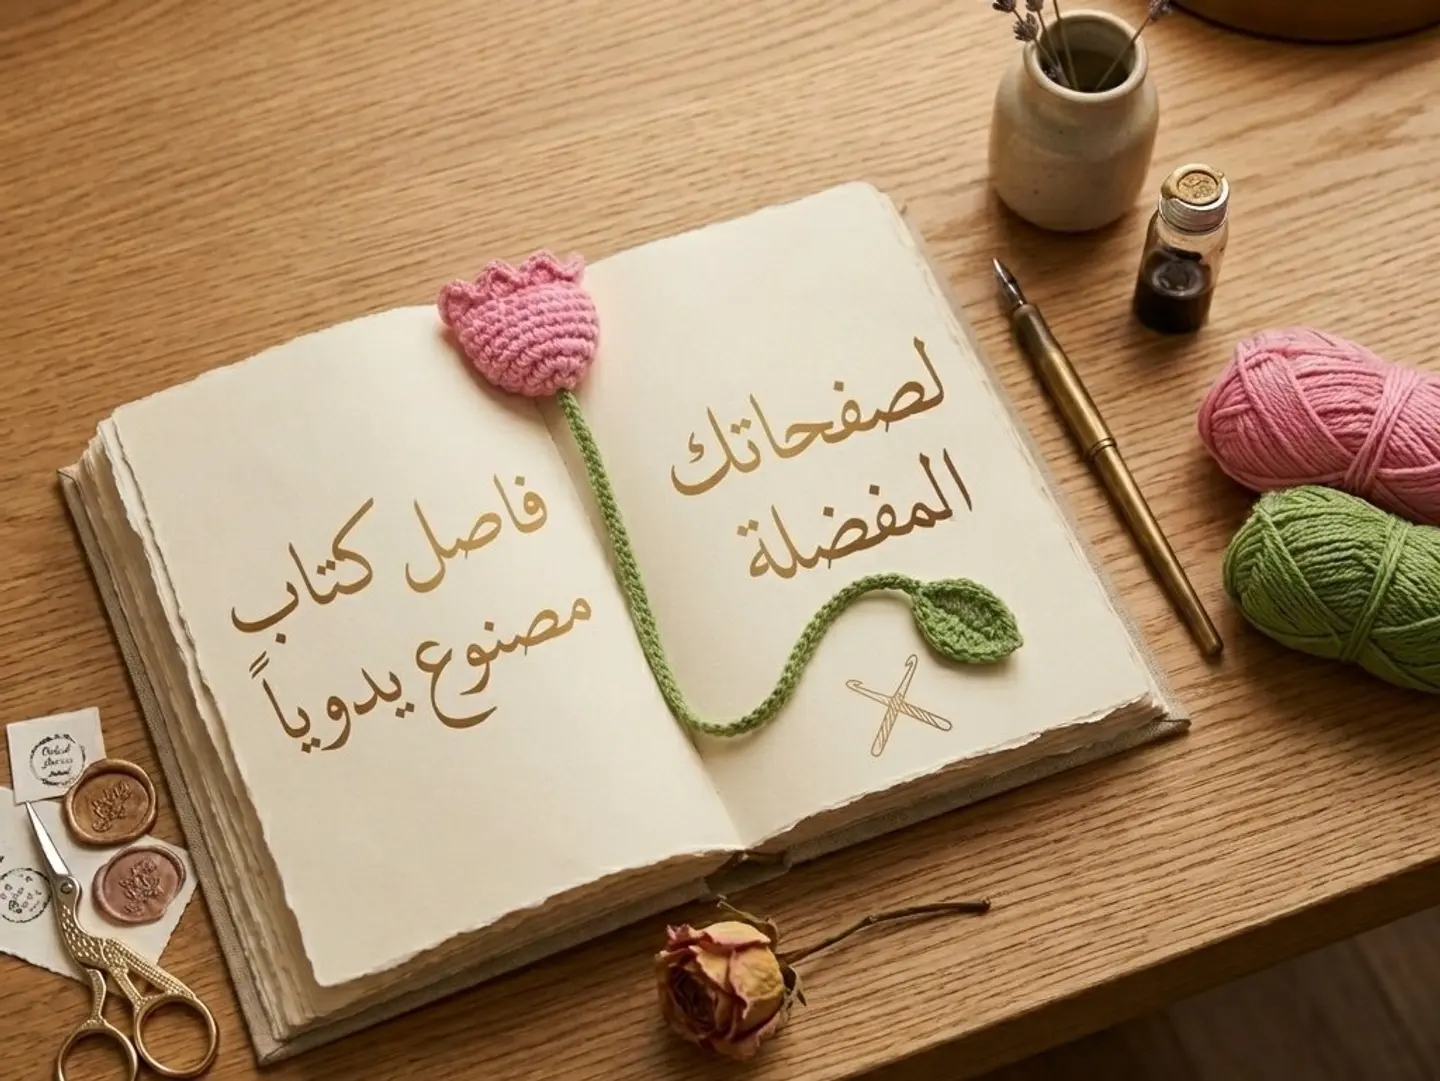 لصفحاتك
المفضلة
فاصل كتاب
مصنوع يدوياً